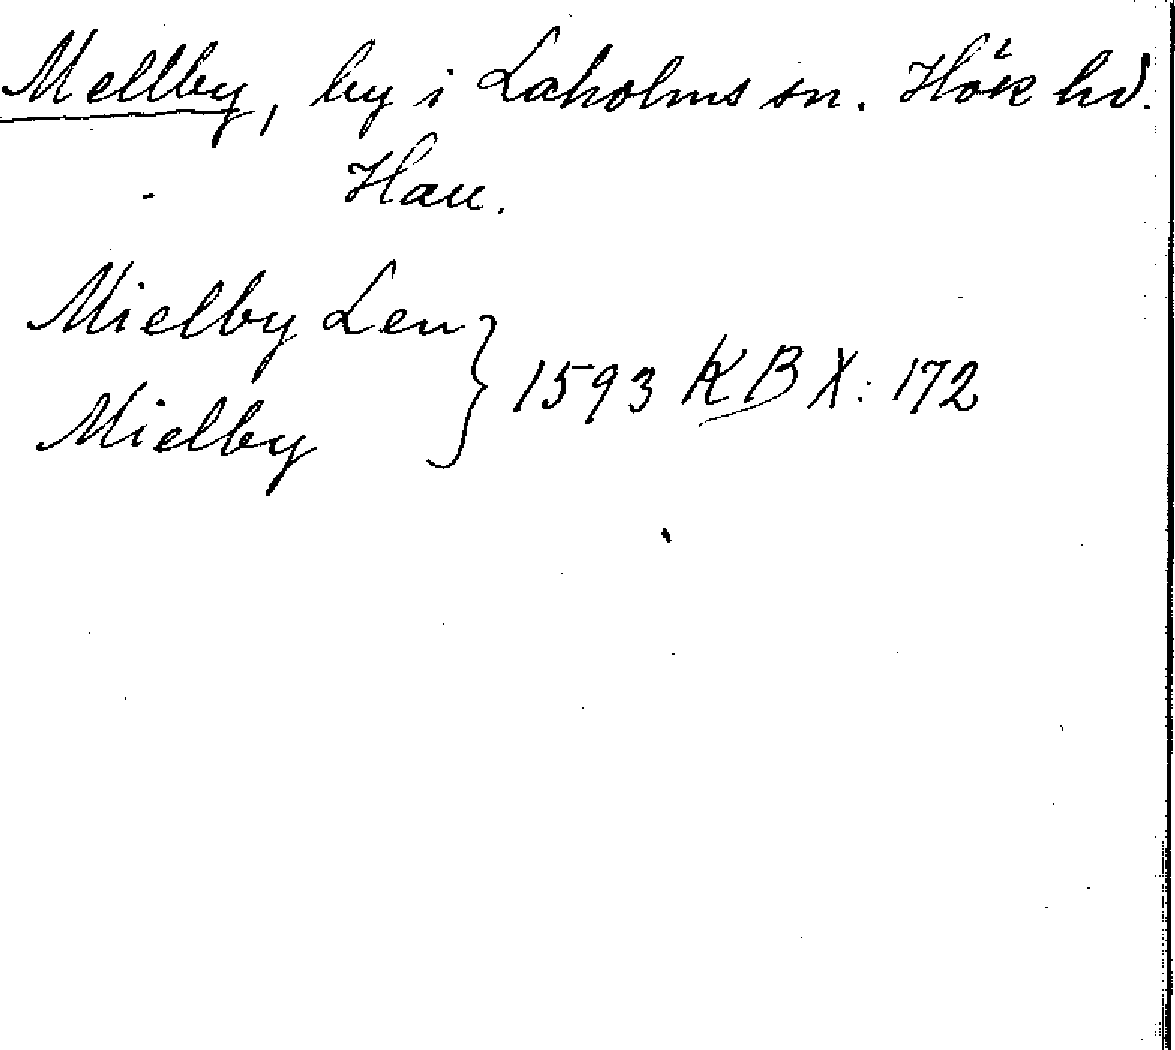 Mellby, by i Laholms sn. Hök hd.
Hall.
Mielby Len } 1593 KB X: 172
Mielby